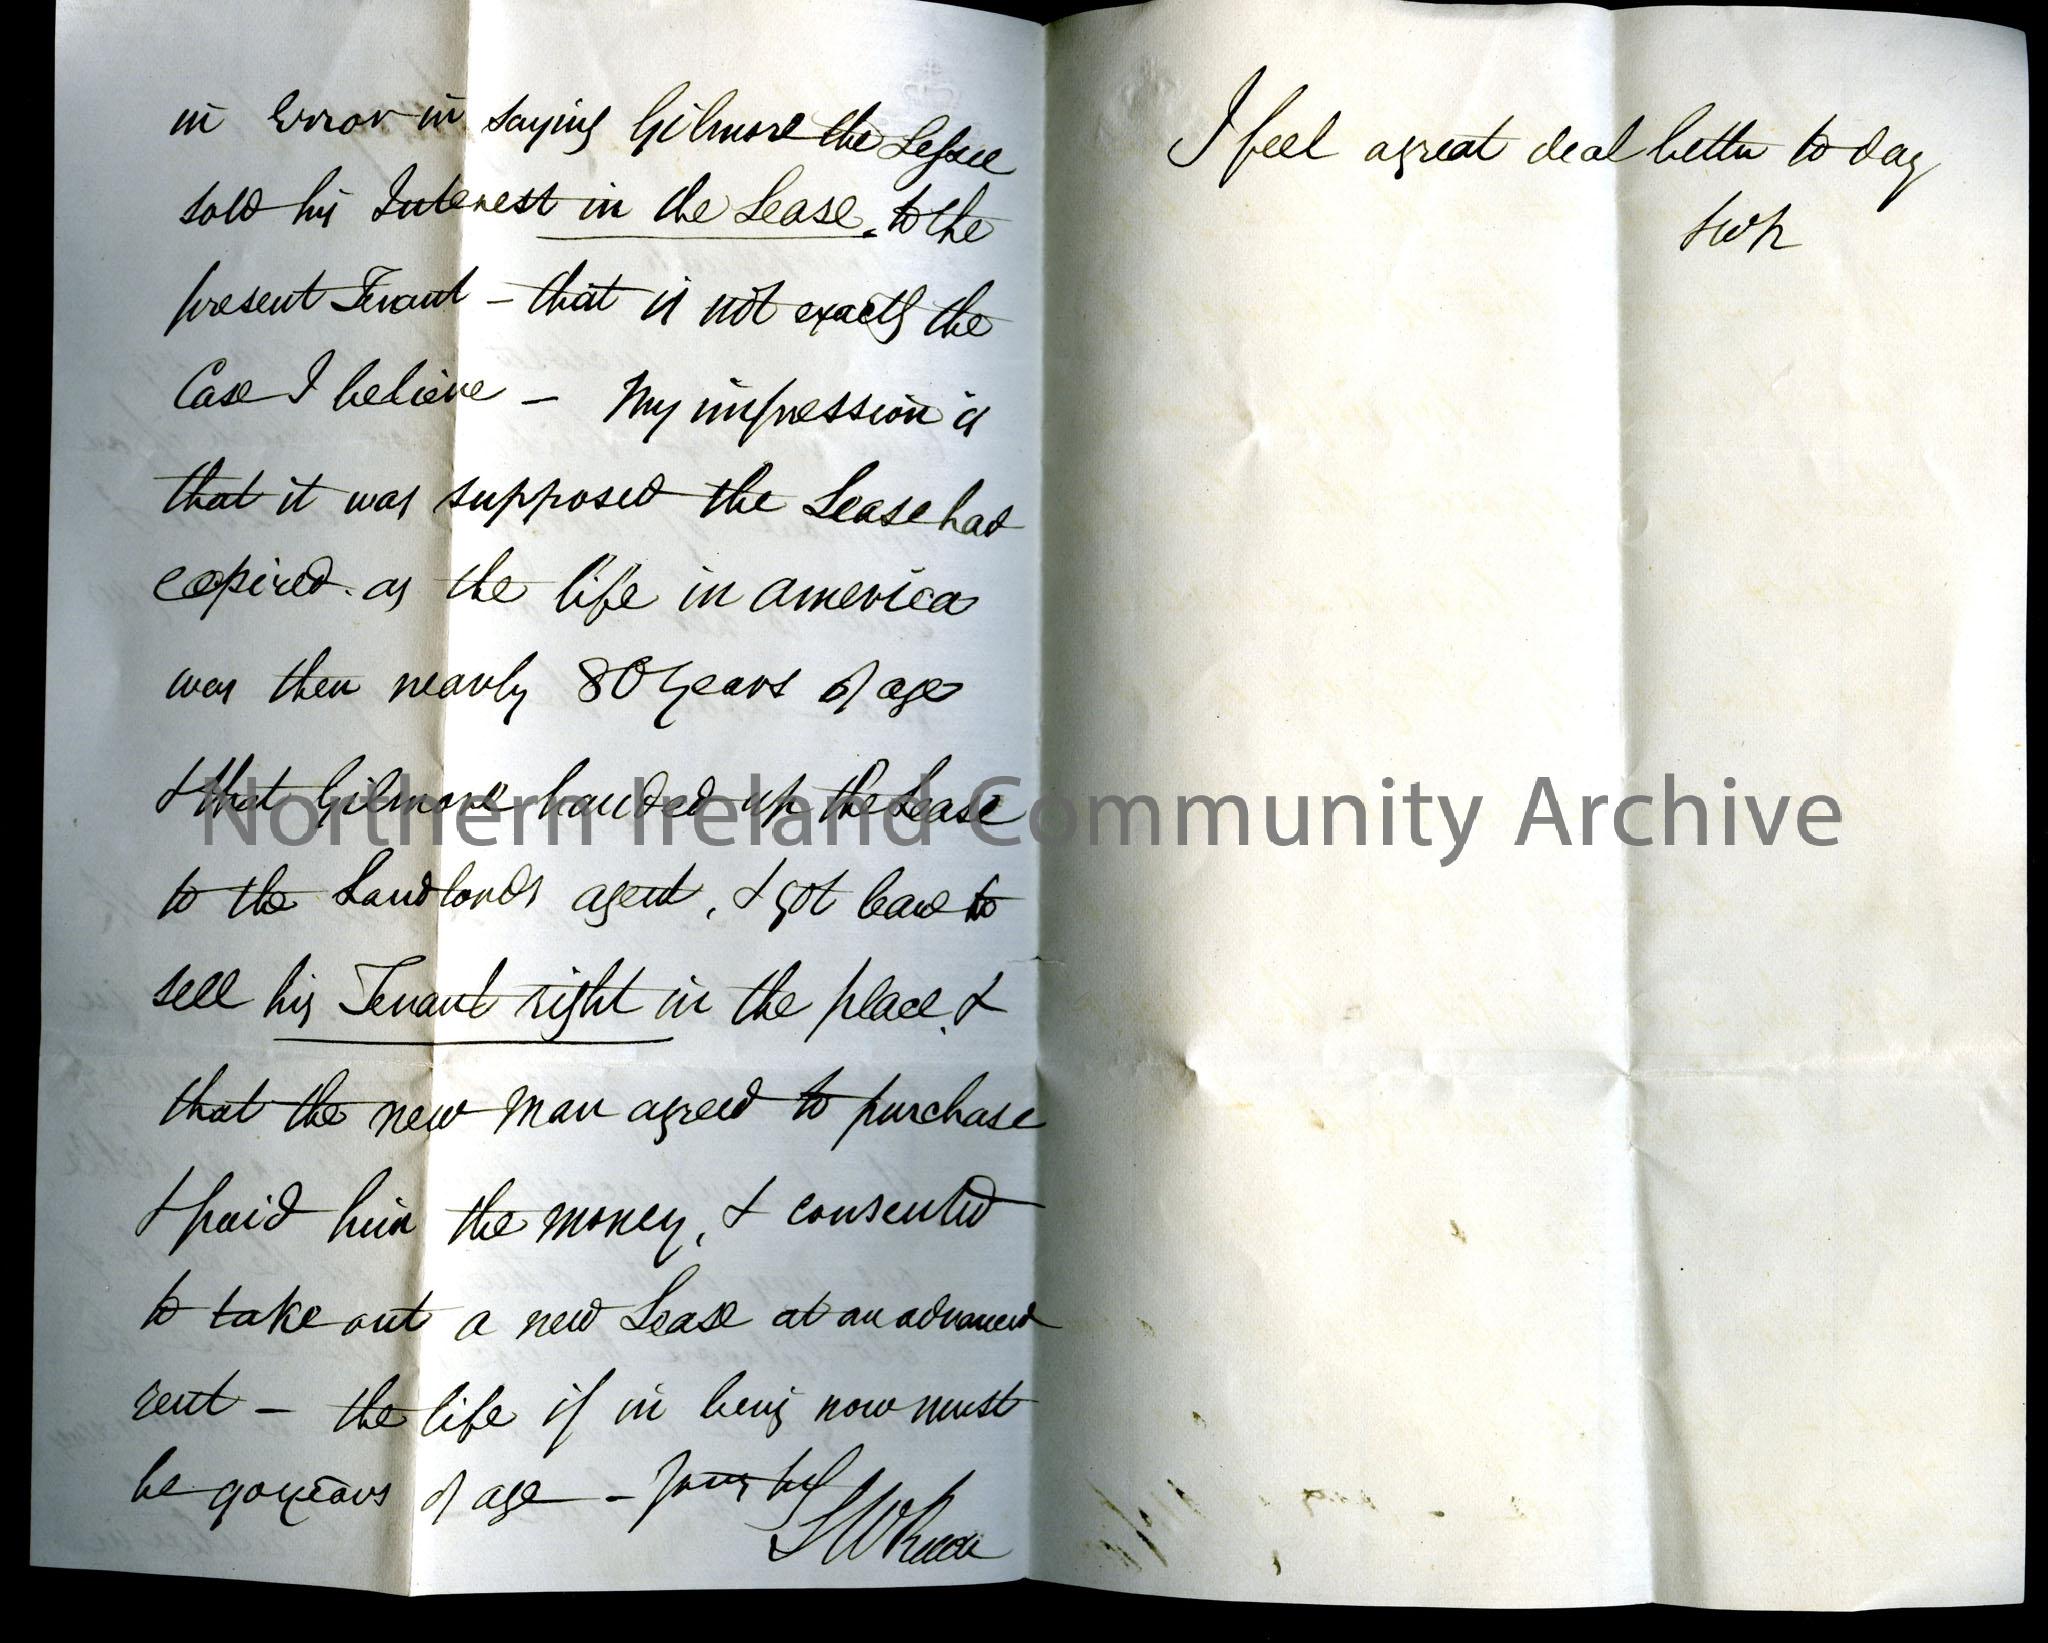 in Error in saying Gilmore the Lessee
sold his Interest in the Lease. to the
present Tenant - that is not exactly the
Case I believe - My impression is
that it was supposed the Lease had
expired. as the life in america
was then nearly 80 years of age
& that Gilmore handed up the Lease
to the Landlords agent, & got leave to
sell his Tenant right in the place, &
that the new man agreed to purchase
& paid him the money, & consented
to take out a new Lease at an advanced
rent - the life if in being now must
be 90 years of age - Yours truly
I feel a great deal better to day
SWK
Northern Ireland Community Archive